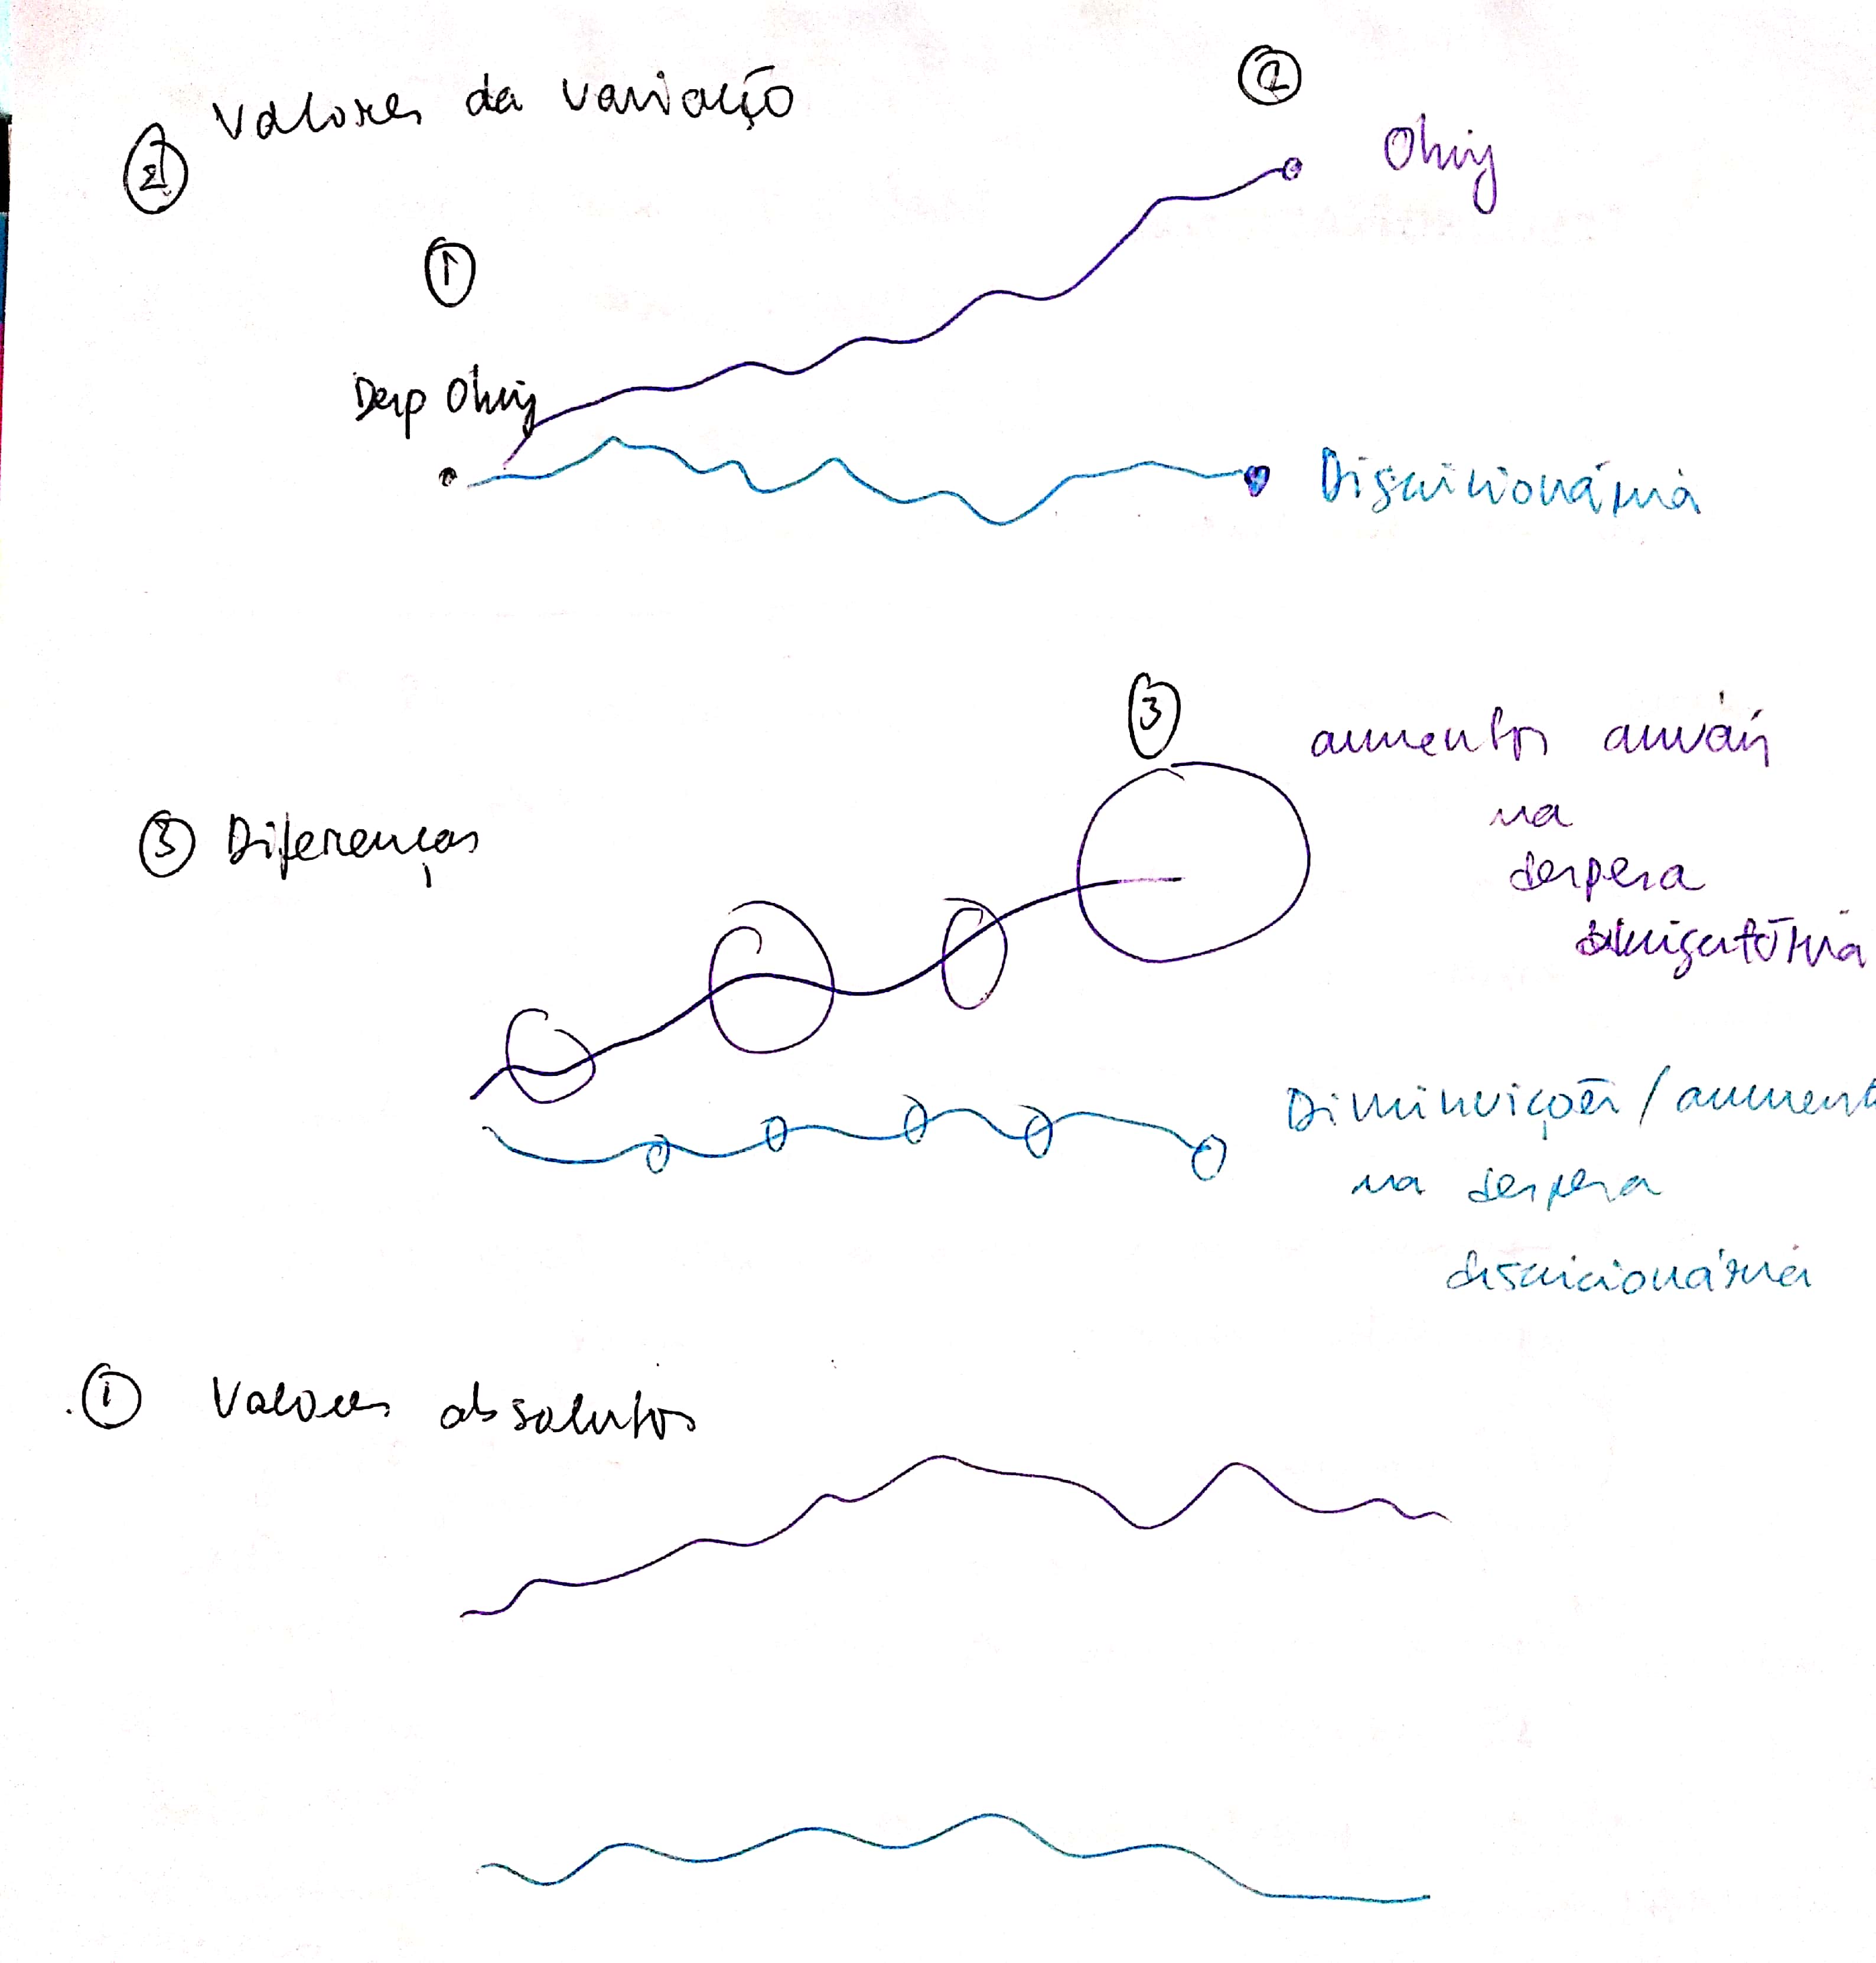 ② Valores da variação
②
Obrig
①
Desp Obrig
Discricionária
③
aumentos anuais
na
despesa
obrigatória
③ Diferenças
Diminuições / aument
na despesa
discricionária
① Valores absolutos